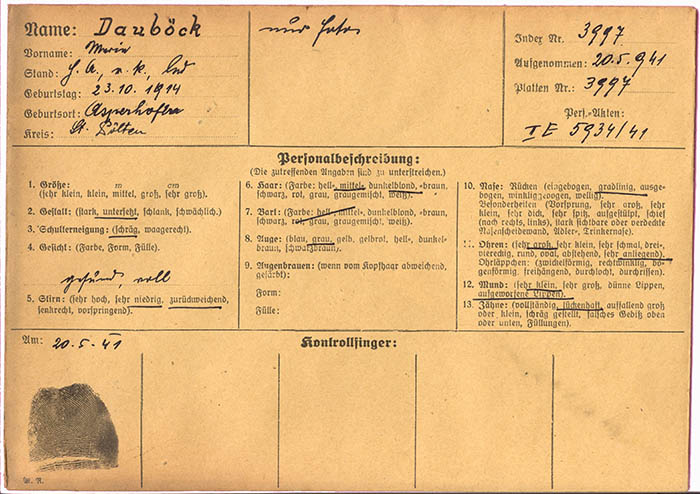 Name: Dauböck
Vorname: Maria
Stand: H. A., r. k., led
Geburtstag: 23.10.1914
Geburtsort: Asperhofen
Kreis: St. Pölten
nur Foto
Index Nr. 3997
Aufgenommen: 20.5.941
Platten Nr.: 3997
Pers.-Akten:
I E 5934/41
Personalbeschreibung:
(Die zutreffenden Angaben sind zu unterstreichen.)
1. Größe: m cm
(sehr klein, klein, mittel, groß, sehr groß).
2. Gestalt: (stark, untersetzt, schlank, schwächlich.)
3. Schulterneigung: (schräg, waagerecht).
4. Gesicht: (Farbe, Form, Fülle).
gesund, voll
5. Stirn: (sehr hoch, sehr niedrig, zurückweichend,
senkrecht, vorspringend).
6. Haar: (Farbe: hell-, mittel, dunkelblond, -braun,
schwarz, rot, grau, graugemischt, weiß).
7. Bart: (Farbe: hell-, mittel-, dunkelblond, -braun,
schwarz, rot, grau, graugemischt, weiß).
8. Auge: (blau, grau, gelb, gelbrot, hell-, dunkel-
braun, schwarzbraun).
9. Augenbrauen: (wenn vom Kopfhaar abweichend,
gefärbt):
Form:
Fülle:
10. Nase: Rücken (eingebogen, gradlinig, ausge-
bogen, winkliggezogen, wellig).
Besonderheiten (Vorsprung, sehr groß, sehr
klein, sehr dick, sehr spitz, aufgestülpt, schief
(nach rechts, links), stark sichtbare oder verdeckte
Nasenscheidewand, Adler-, Trinkernase).
11. Ohren: (sehr groß, sehr klein, sehr schmal, drei-,
viereckig, rund, oval, abstehend, sehr anliegend).
Ohrläppchen: (zwickelförmig, rechtwinklig, bo-
genförmig, freihängend, durchlocht, durchrissen).
12. Mund: (sehr klein, sehr groß, dünne Lippen,
aufgeworfene Lippen).
13. Zähne: (vollständig, lückenhaft, auffallend groß
oder klein, schräg gestellt, falsches Gebiß oben
oder unten, Füllungen).
Am: 20.5.41
Kontrollfinger: